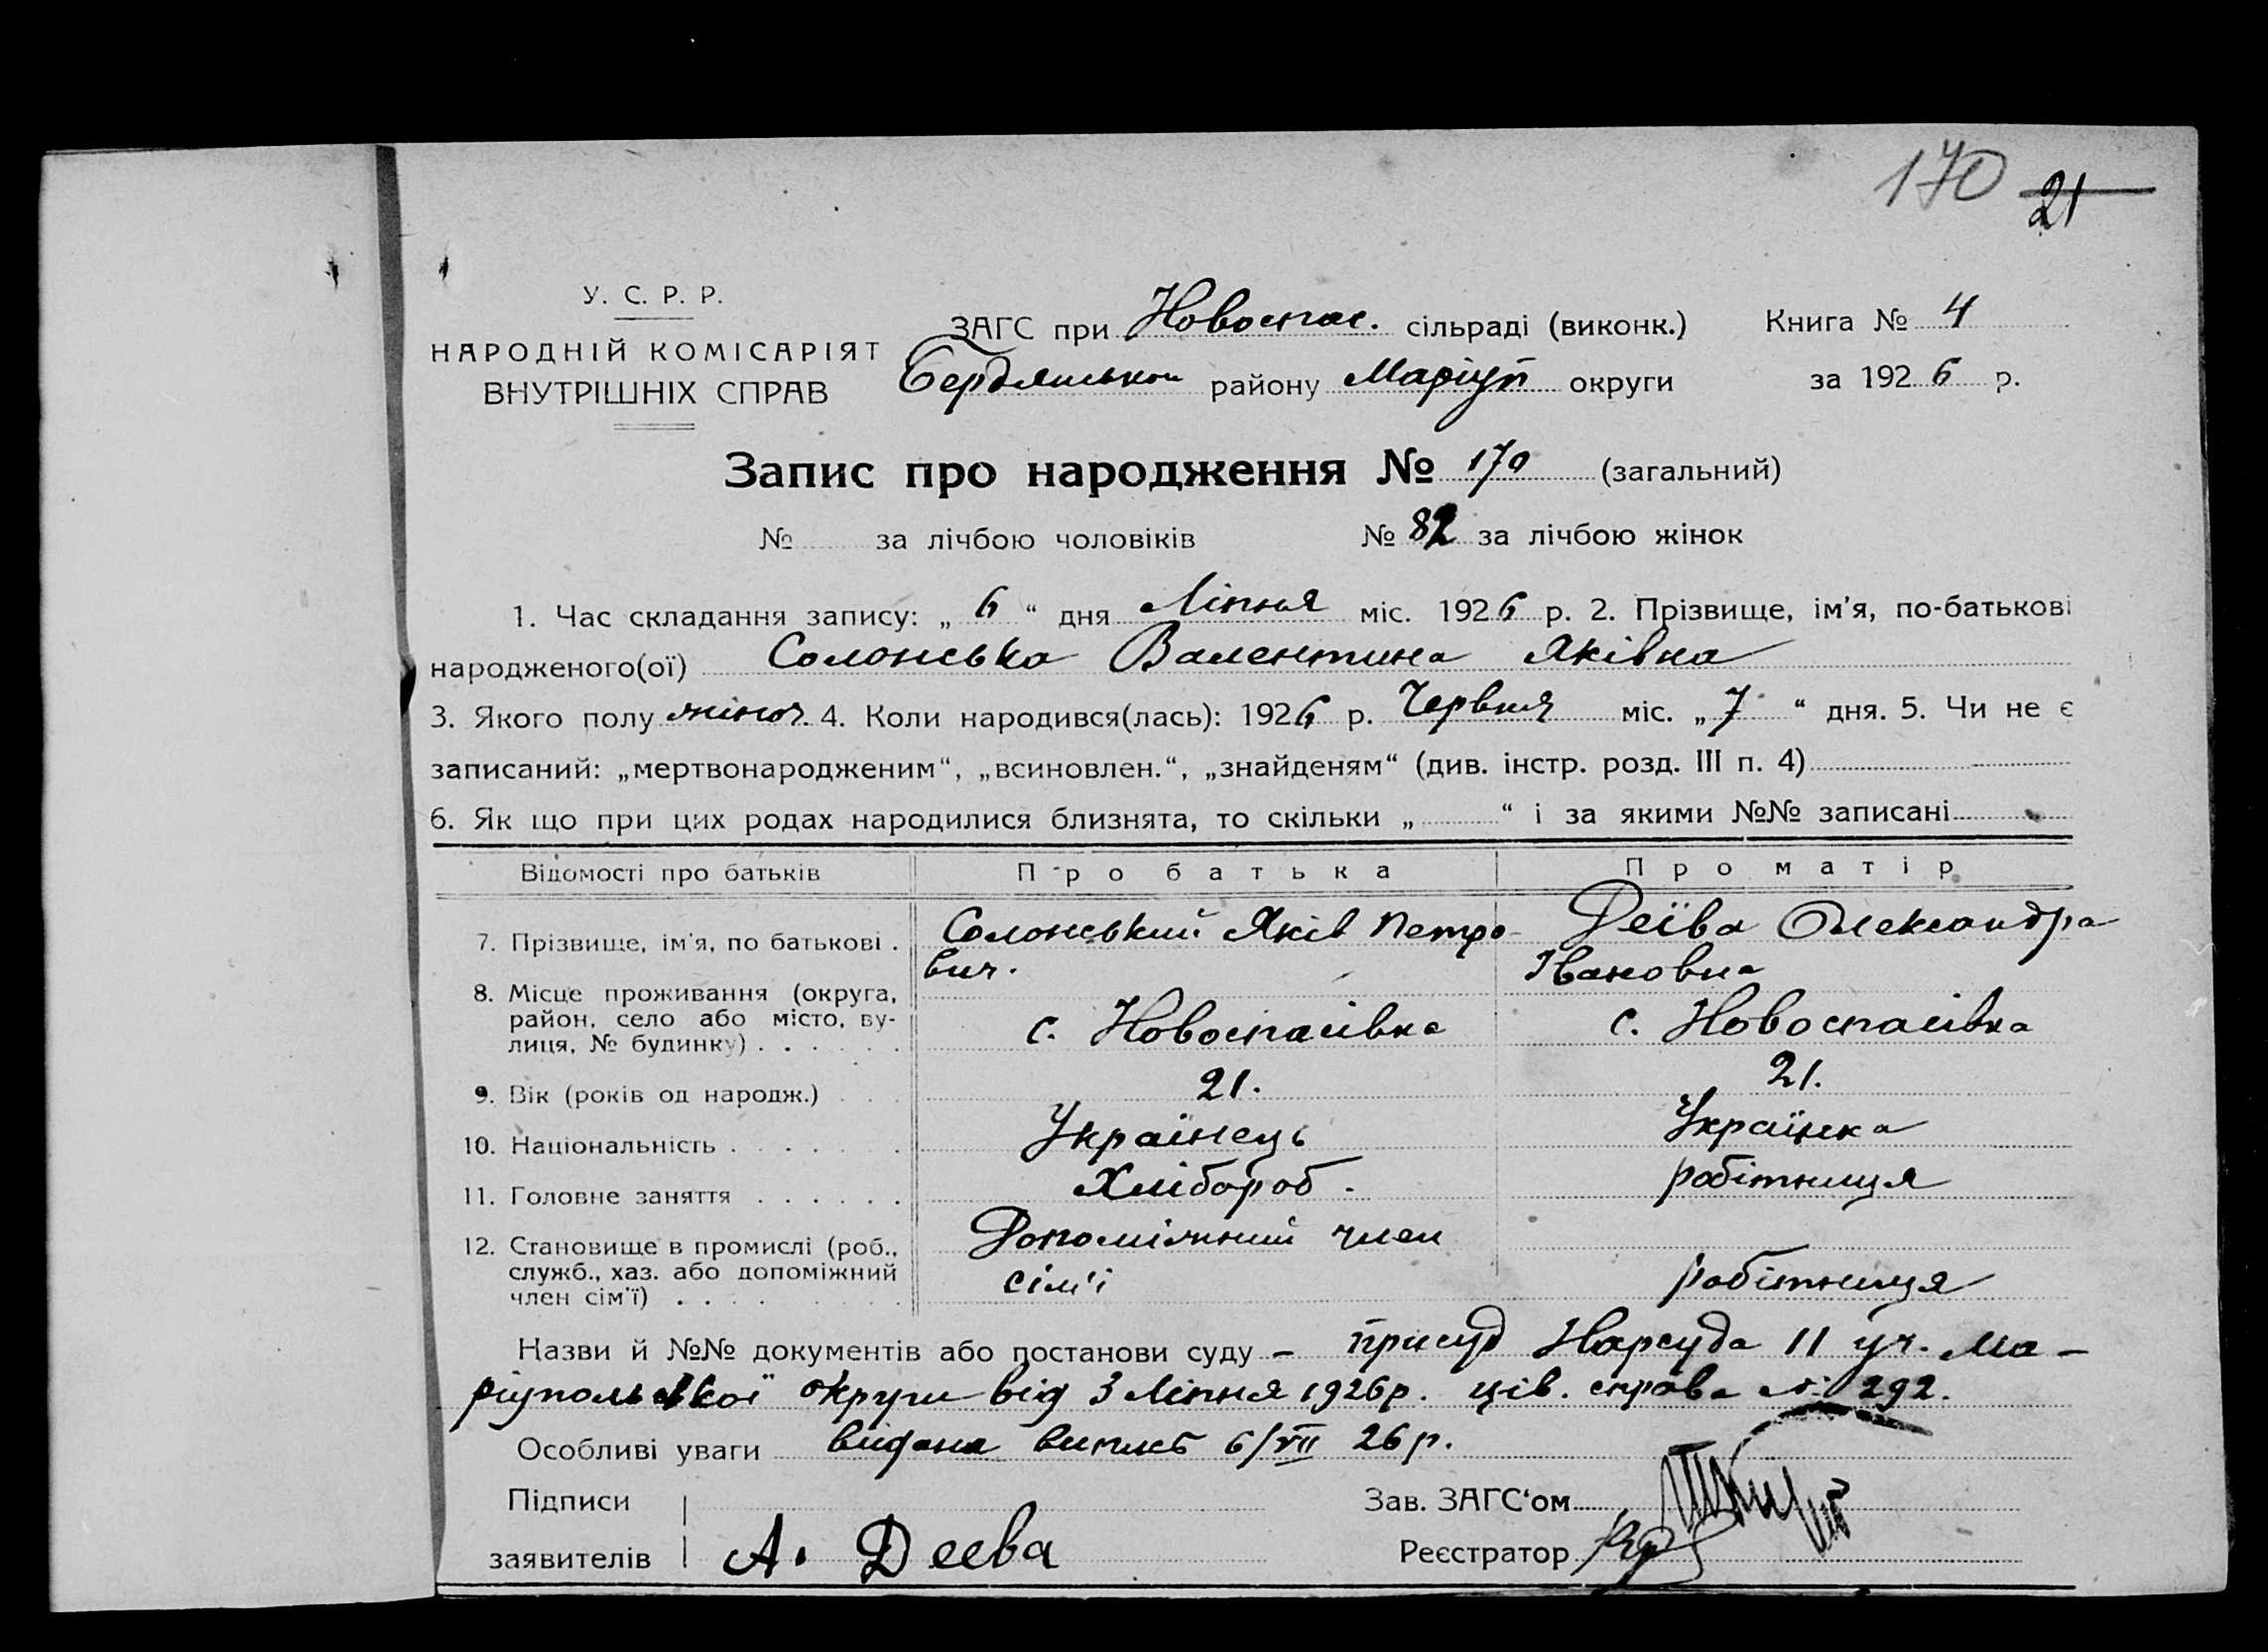 170 21
У. С. Р. Р.
НАРОДНІЙ КОМІСАРІЯТ
ВНУТРІШНІХ СПРАВ
ЗАГС при Новоспас. сільраді (виконк.) Книга № 4
Бердянськом району Маріуп округи за 1926 р.
Запис про народження № 170 (загальний)
№ за лічбою чоловіків № 82 за лічбою жінок
1. Час складання запису: „ 6 “ дня Ліпня міс. 1926 р. 2. Прізвище, ім'я, по-батькові
народженого(ої) Солонська Валентина Яківна
3. Якого полу жіноч. 4. Коли народився(лась): 1926 р. Червня міс. „ 7 “ дня. 5. Чи не є
записаний: „мертвонародженим“, „всиновлен.“, „знайденям“ (див. інстр. розд. III п. 4)
6. Як що при цих родах народилися близнята, то скільки „ “ і за якими №№ записані
Відомості про батьків Про батька Про матір
7. Прізвище, ім'я, по батькові . Солонський Яків Петро- Деїва Олександра
вич. Івановна
8. Місце проживання (округа,
район, село або місто, ву-
лиця, № будинку) . . . . . . с. Новоспасівка с. Новоспасівка
9. Вік (років од народж.) . . . 21. 21.
10. Національність . . . . . . . Українець Українка
11. Головне заняття . . . . . . Хлібороб. робітниця
12. Становище в промислі (роб.,
служб., хаз. або допоміжний
член сім'ї) . . . . Допоміжний член
сім'ї робітниця
Назви й №№ документів або постанови суду – присуд Нарсуда 11 уч. Ма-
ріупольської округи від 3 Ліпня 1926р. ців. справа №: 292.
Особливі уваги видана випись 6/VII 26 р.
Підписи Зав. ЗАГС‘ом
заявителів А. Деева Реєстратор